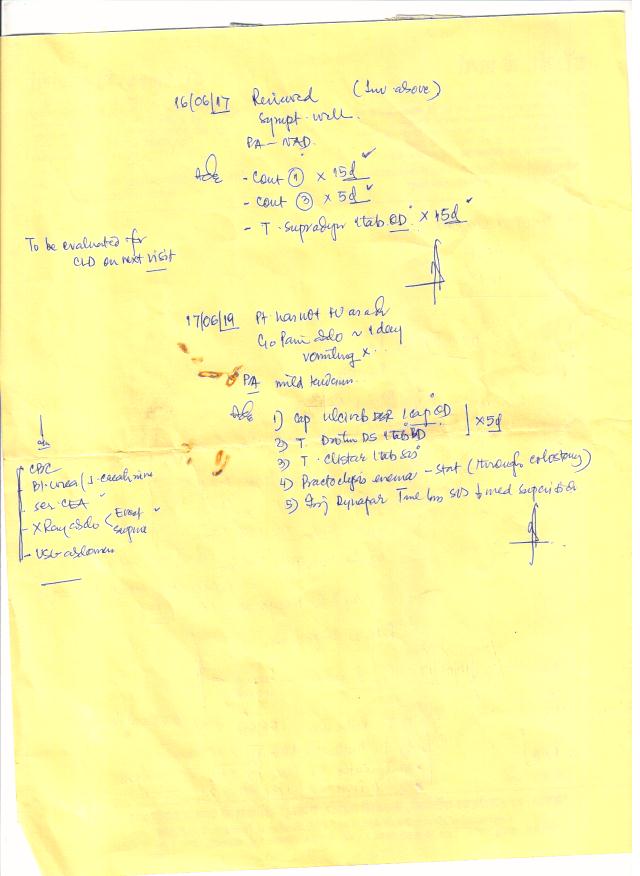 16/06/17 Reviewed (Inv above)
Sympt. well.
PA - NAD.
Adv - Cont ① x 15d
- Cont ③ x 5d
- T. Supradyn 1tab OD x 15d
To be evaluated for
CLD on next visit
17/06/19 Pt has not FU as adv
C/o Pain abdo ~ 1 day
vomiting x..
PA mild
Adv 1) Cap 1cap OD x5d
2) T Drotin DS 1tab BD
3) T. 1tab SOS
4) Proctoclysis enema - Stat (through colostomy)
5) Inj Dynapar 1ml SOS med
CBC
Bl. urea / S. creatinine
Ser. CEA
X Ray abdo < Erect
Supine
USG abdomen